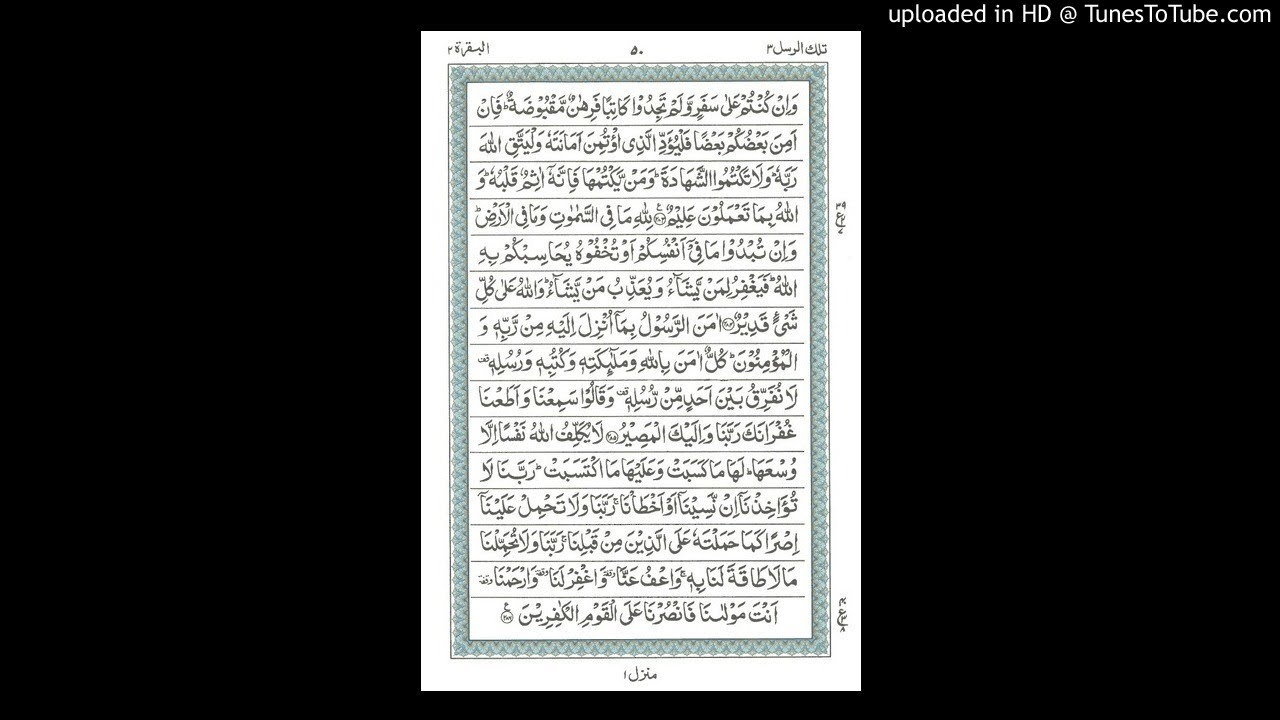 uploaded in HD @ TunesToTube.com
تلك الرسل ٣
٥٠
البقرة ٢
وَاِنْ كُنْتُمْ عَلٰى سَفَرٍ وَّلَمْ تَجِدُوْا كَاتِبًا فَرِهٰنٌ مَّقْبُوْضَةٌ ؕ فَاِنْ
اَمِنَ بَعْضُكُمْ بَعْضًا فَلْيُؤَدِّ الَّذِى اؤْتُمِنَ اَمَانَتَهٗ وَلْيَتَّقِ اللّٰهَ
رَبَّهٗ ؕ وَلَا تَكْتُمُوا الشَّهَادَةَ ؕ وَمَنْ يَّكْتُمْهَا فَاِنَّهٗۤ اٰثِمٌ قَلْبُهٗ ؕ وَ
اللّٰهُ بِمَا تَعْمَلُوْنَ عَلِيْمٌ ﴿۲۸۳﴾ لِلّٰهِ مَا فِى السَّمٰوٰتِ وَمَا فِى الْاَرْضِ ؕ
وَاِنْ تُبْدُوْا مَا فِىْۤ اَنْفُسِكُمْ اَوْ تُخْفُوْهُ يُحَاسِبْكُمْ بِهِ
اللّٰهُ ؕ فَيَغْفِرُ لِمَنْ يَّشَآءُ وَيُعَذِّبُ مَنْ يَّشَآءُ ؕ وَاللّٰهُ عَلٰى كُلِّ
شَىْءٍ قَدِيْرٌ ﴿۲۸۴﴾ اٰمَنَ الرَّسُوْلُ بِمَاۤ اُنْزِلَ اِلَيْهِ مِنْ رَّبِّهٖ وَ
الْمُؤْمِنُوْنَ ؕ كُلٌّ اٰمَنَ بِاللّٰهِ وَمَلٰٓئِكَتِهٖ وَكُتُبِهٖ وَرُسُلِهٖ قف
لَا نُفَرِّقُ بَيْنَ اَحَدٍ مِّنْ رُّسُلِهٖ قف وَقَالُوْا سَمِعْنَا وَاَطَعْنَا
غُفْرَانَكَ رَبَّنَا وَاِلَيْكَ الْمَصِيْرُ ﴿۲۸۵﴾ لَا يُكَلِّفُ اللّٰهُ نَفْسًا اِلَّا
وُسْعَهَا ؕ لَهَا مَا كَسَبَتْ وَعَلَيْهَا مَا اكْتَسَبَتْ ؕ رَبَّنَا لَا
تُؤَاخِذْنَاۤ اِنْ نَّسِيْنَاۤ اَوْ اَخْطَاْنَا ۚ رَبَّنَا وَلَا تَحْمِلْ عَلَيْنَاۤ
اِصْرًا كَمَا حَمَلْتَهٗ عَلَى الَّذِيْنَ مِنْ قَبْلِنَا ۚ رَبَّنَا وَلَا تُحَمِّلْنَا
مَا لَا طَاقَةَ لَنَا بِهٖ ۚ وَاعْفُ عَنَّا وقفة وَاغْفِرْ لَنَا وقفة وَارْحَمْنَا وقفة
اَنْتَ مَوْلٰىنَا فَانْصُرْنَا عَلَى الْقَوْمِ الْكٰفِرِيْنَ ﴿۲۸۶﴾
منزل ١